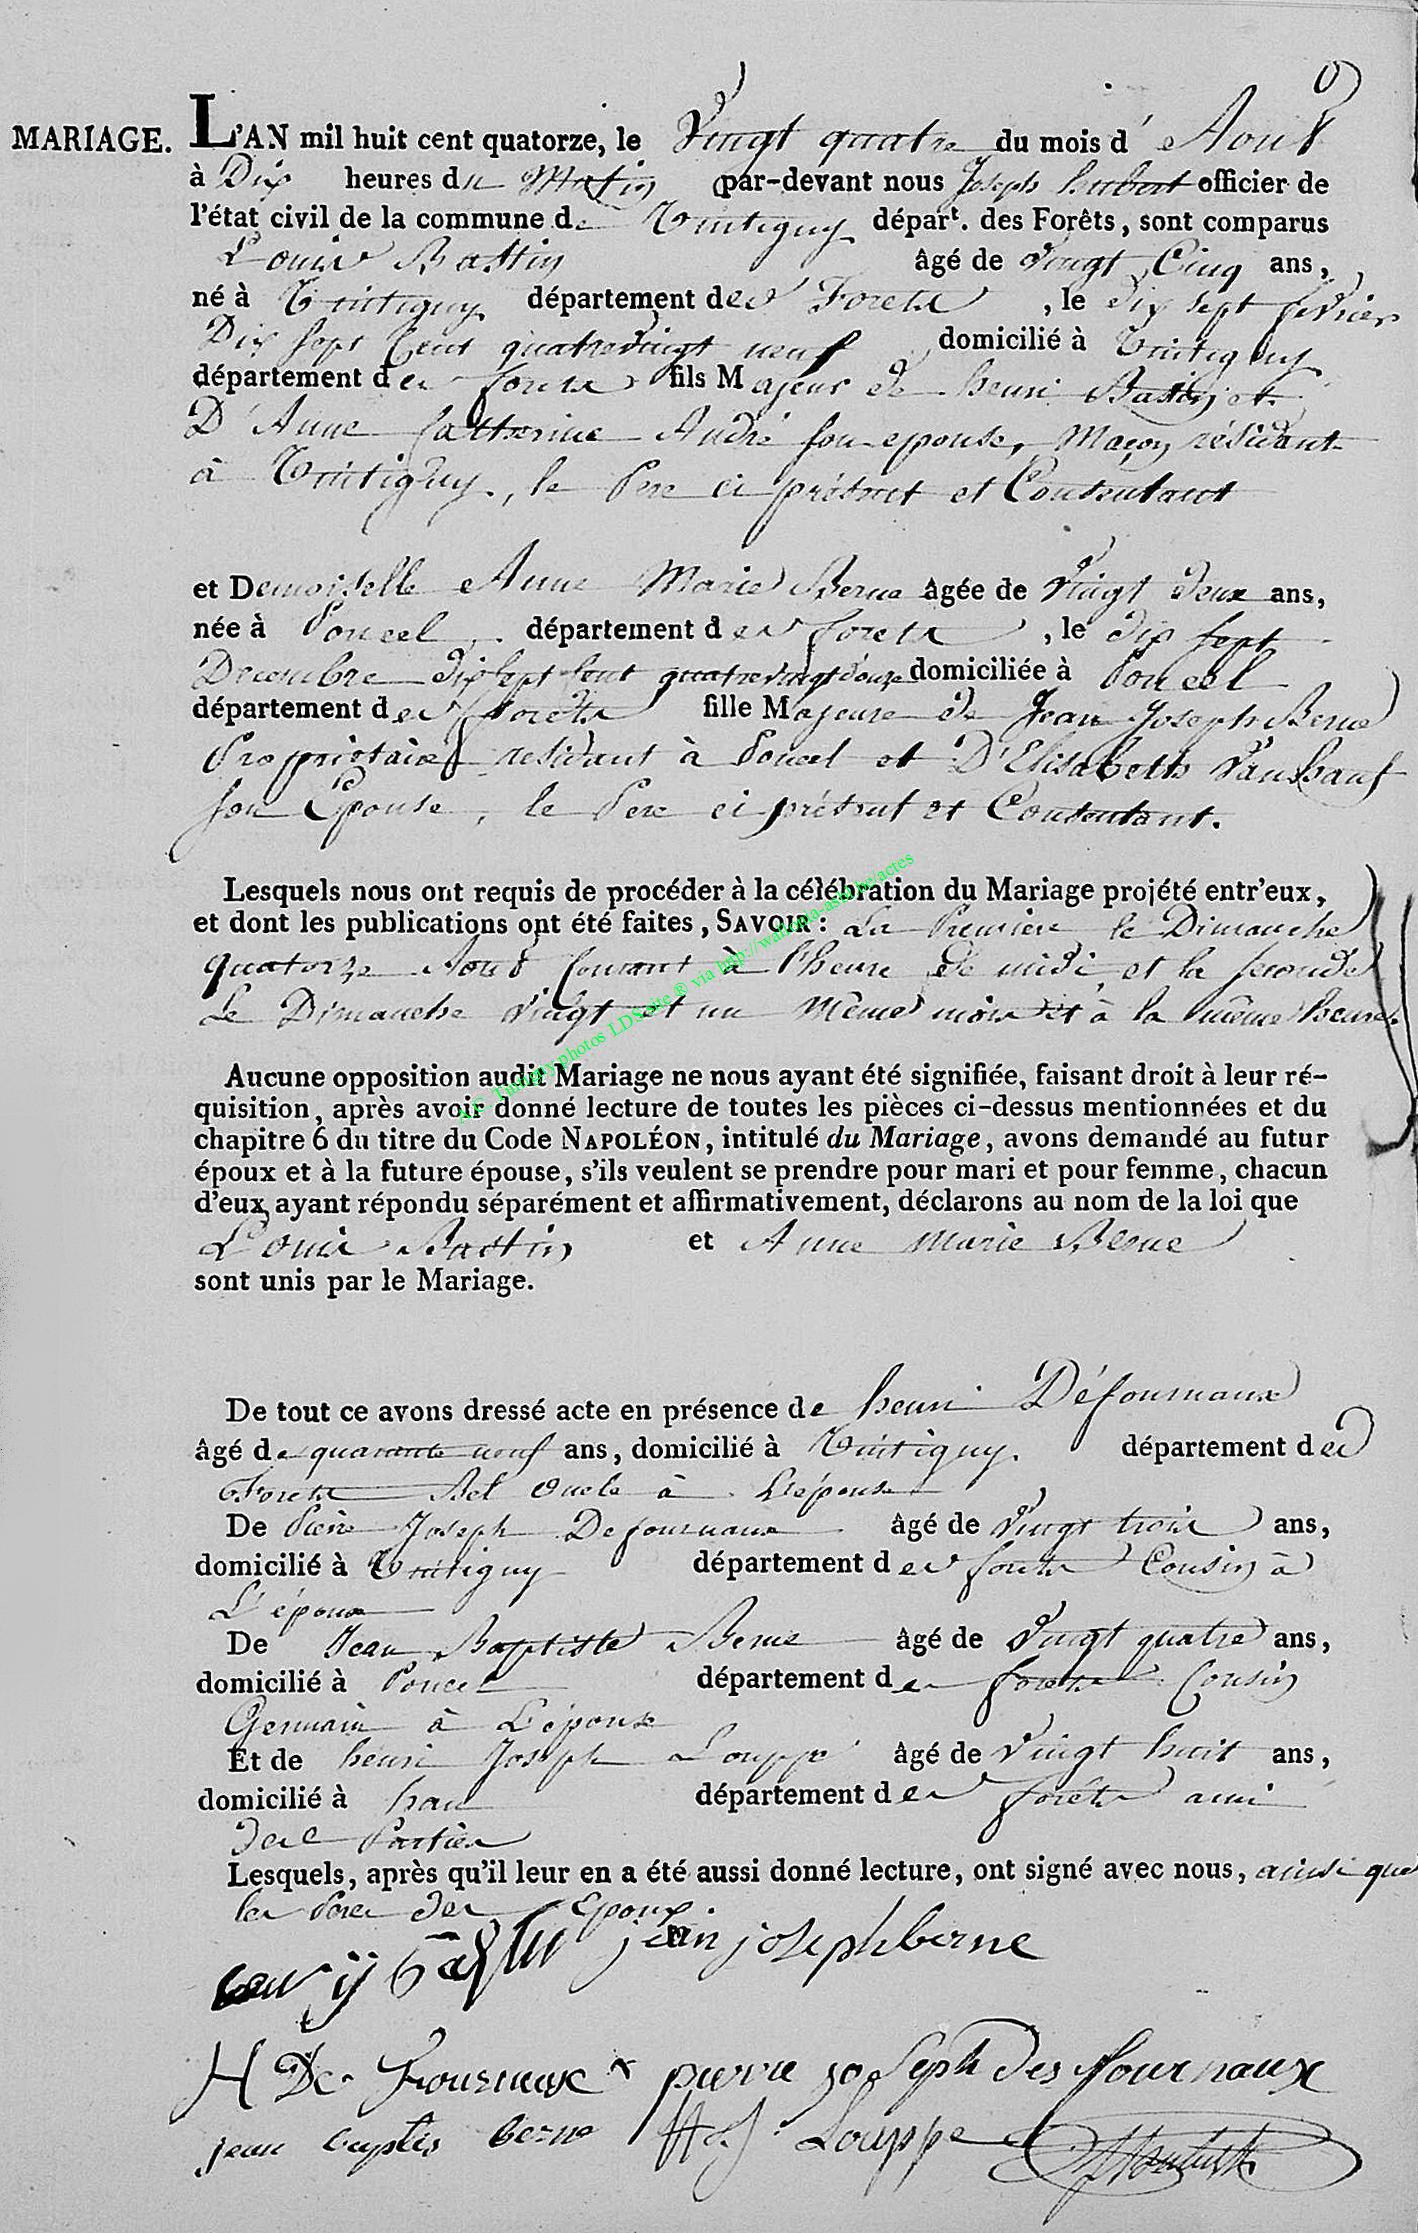 MARIAGE. L'AN mil huit cent quatorze, le Vingt quatre du mois d' Aout
à Dix heures du Matin par-devant nous Joseph hubert officier de
l'état civil de la commune de Tintigny départ. des Forêts, sont comparus
Louis Bastin âgé de Vingt Cinq ans,
né à Tintigny département des Forets, le dix sept fevrier
Dix sept Cent quatrevingt neuf domicilié à Tintigny
département des forets fils Majeur de henri Bastin et
D'Anne Catherine André son epouse, Maçon résidant
à Tintigny, le Pere ci présent et Consentant
et Demoiselle Anne Marie Berne âgée de Vingt deux ans,
née à Poncel, département des forets, le dix sept
Decembre dix sept Cent quatrevingt douze domiciliée à Poncel
département des forets fille Majeure de Jean Joseph Berne
Propriétaire résidant à Poncel et D'Elisabeth
son Epouse, le Pere ci présent et Consentant.
Lesquels nous ont requis de procéder à la célébration du Mariage projété entr'eux,
et dont les publications ont été faites, SAVOIR : La Premiere le Dimanche
quatorze Aout Courant à l'heure de midi et la seconde
Le Dimanche vingt et un Même mois et à la même heure.
Aucune opposition audit Mariage ne nous ayant été signifiée, faisant droit à leur ré-
quisition, après avoir donné lecture de toutes les pièces ci-dessus mentionnées et du
chapitre 6 du titre du Code NAPOLÉON, intitulé du Mariage, avons demandé au futur
époux et à la future épouse, s'ils veulent se prendre pour mari et pour femme, chacun
d'eux ayant répondu séparément et affirmativement, déclarons au nom de la loi que
Louis Bastin et Anne Marie Berne
sont unis par le Mariage.
De tout ce avons dressé acte en présence de henri Défournaux
âgé de quarante neuf ans, domicilié à Tintigny département des
Forets Bel Oncle à L'épouse
De Pierre Joseph Defournaux âgé de Vingt trois ans,
domicilié à Tintigny département des forets Cousin à
L'époux
De Jean Baptiste Berne âgé de Vingt quatre ans,
domicilié à Poncel département des forets Cousin
Germain à L'épouse
Et de henri Joseph Louppe âgé de Vingt huit ans,
domicilié à han département des forets ami
des Parties
Lesquels, après qu'il leur en a été aussi donné lecture, ont signé avec nous, ainsi que
les Peres des Epoux.
bastin jean joseph berne
H De Fournaux pierre joseph Des fournaux
jean baptis berne H J Louppe
A.C. Tintigny photos LDS site ® via http://wallonia-asbl.be/actes